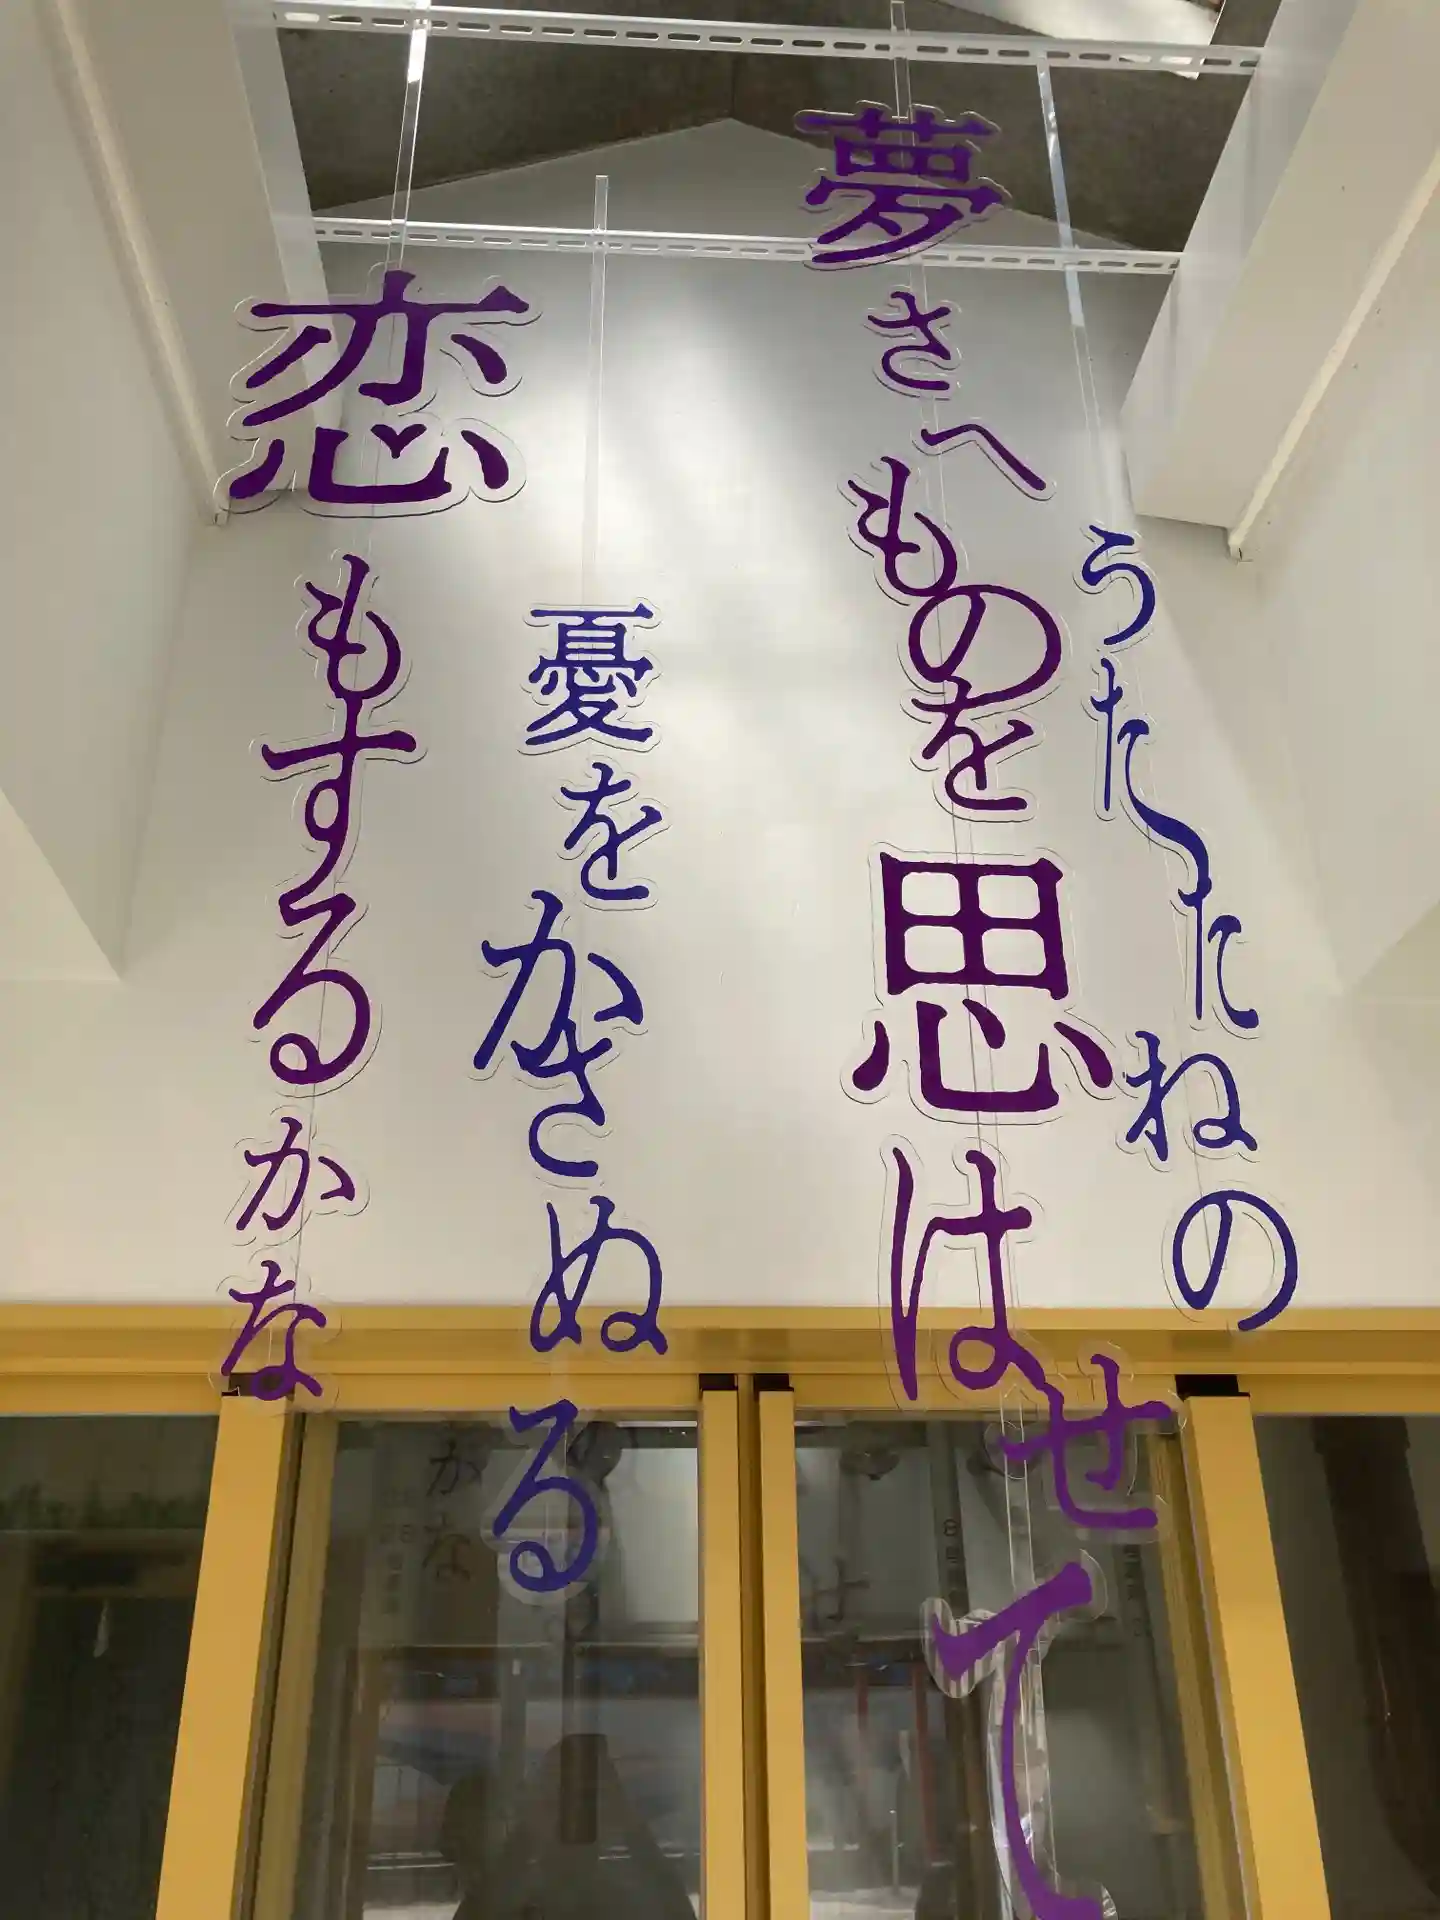 うたたねの
夢さへものを思はせて
憂をかさぬる
恋もするかな